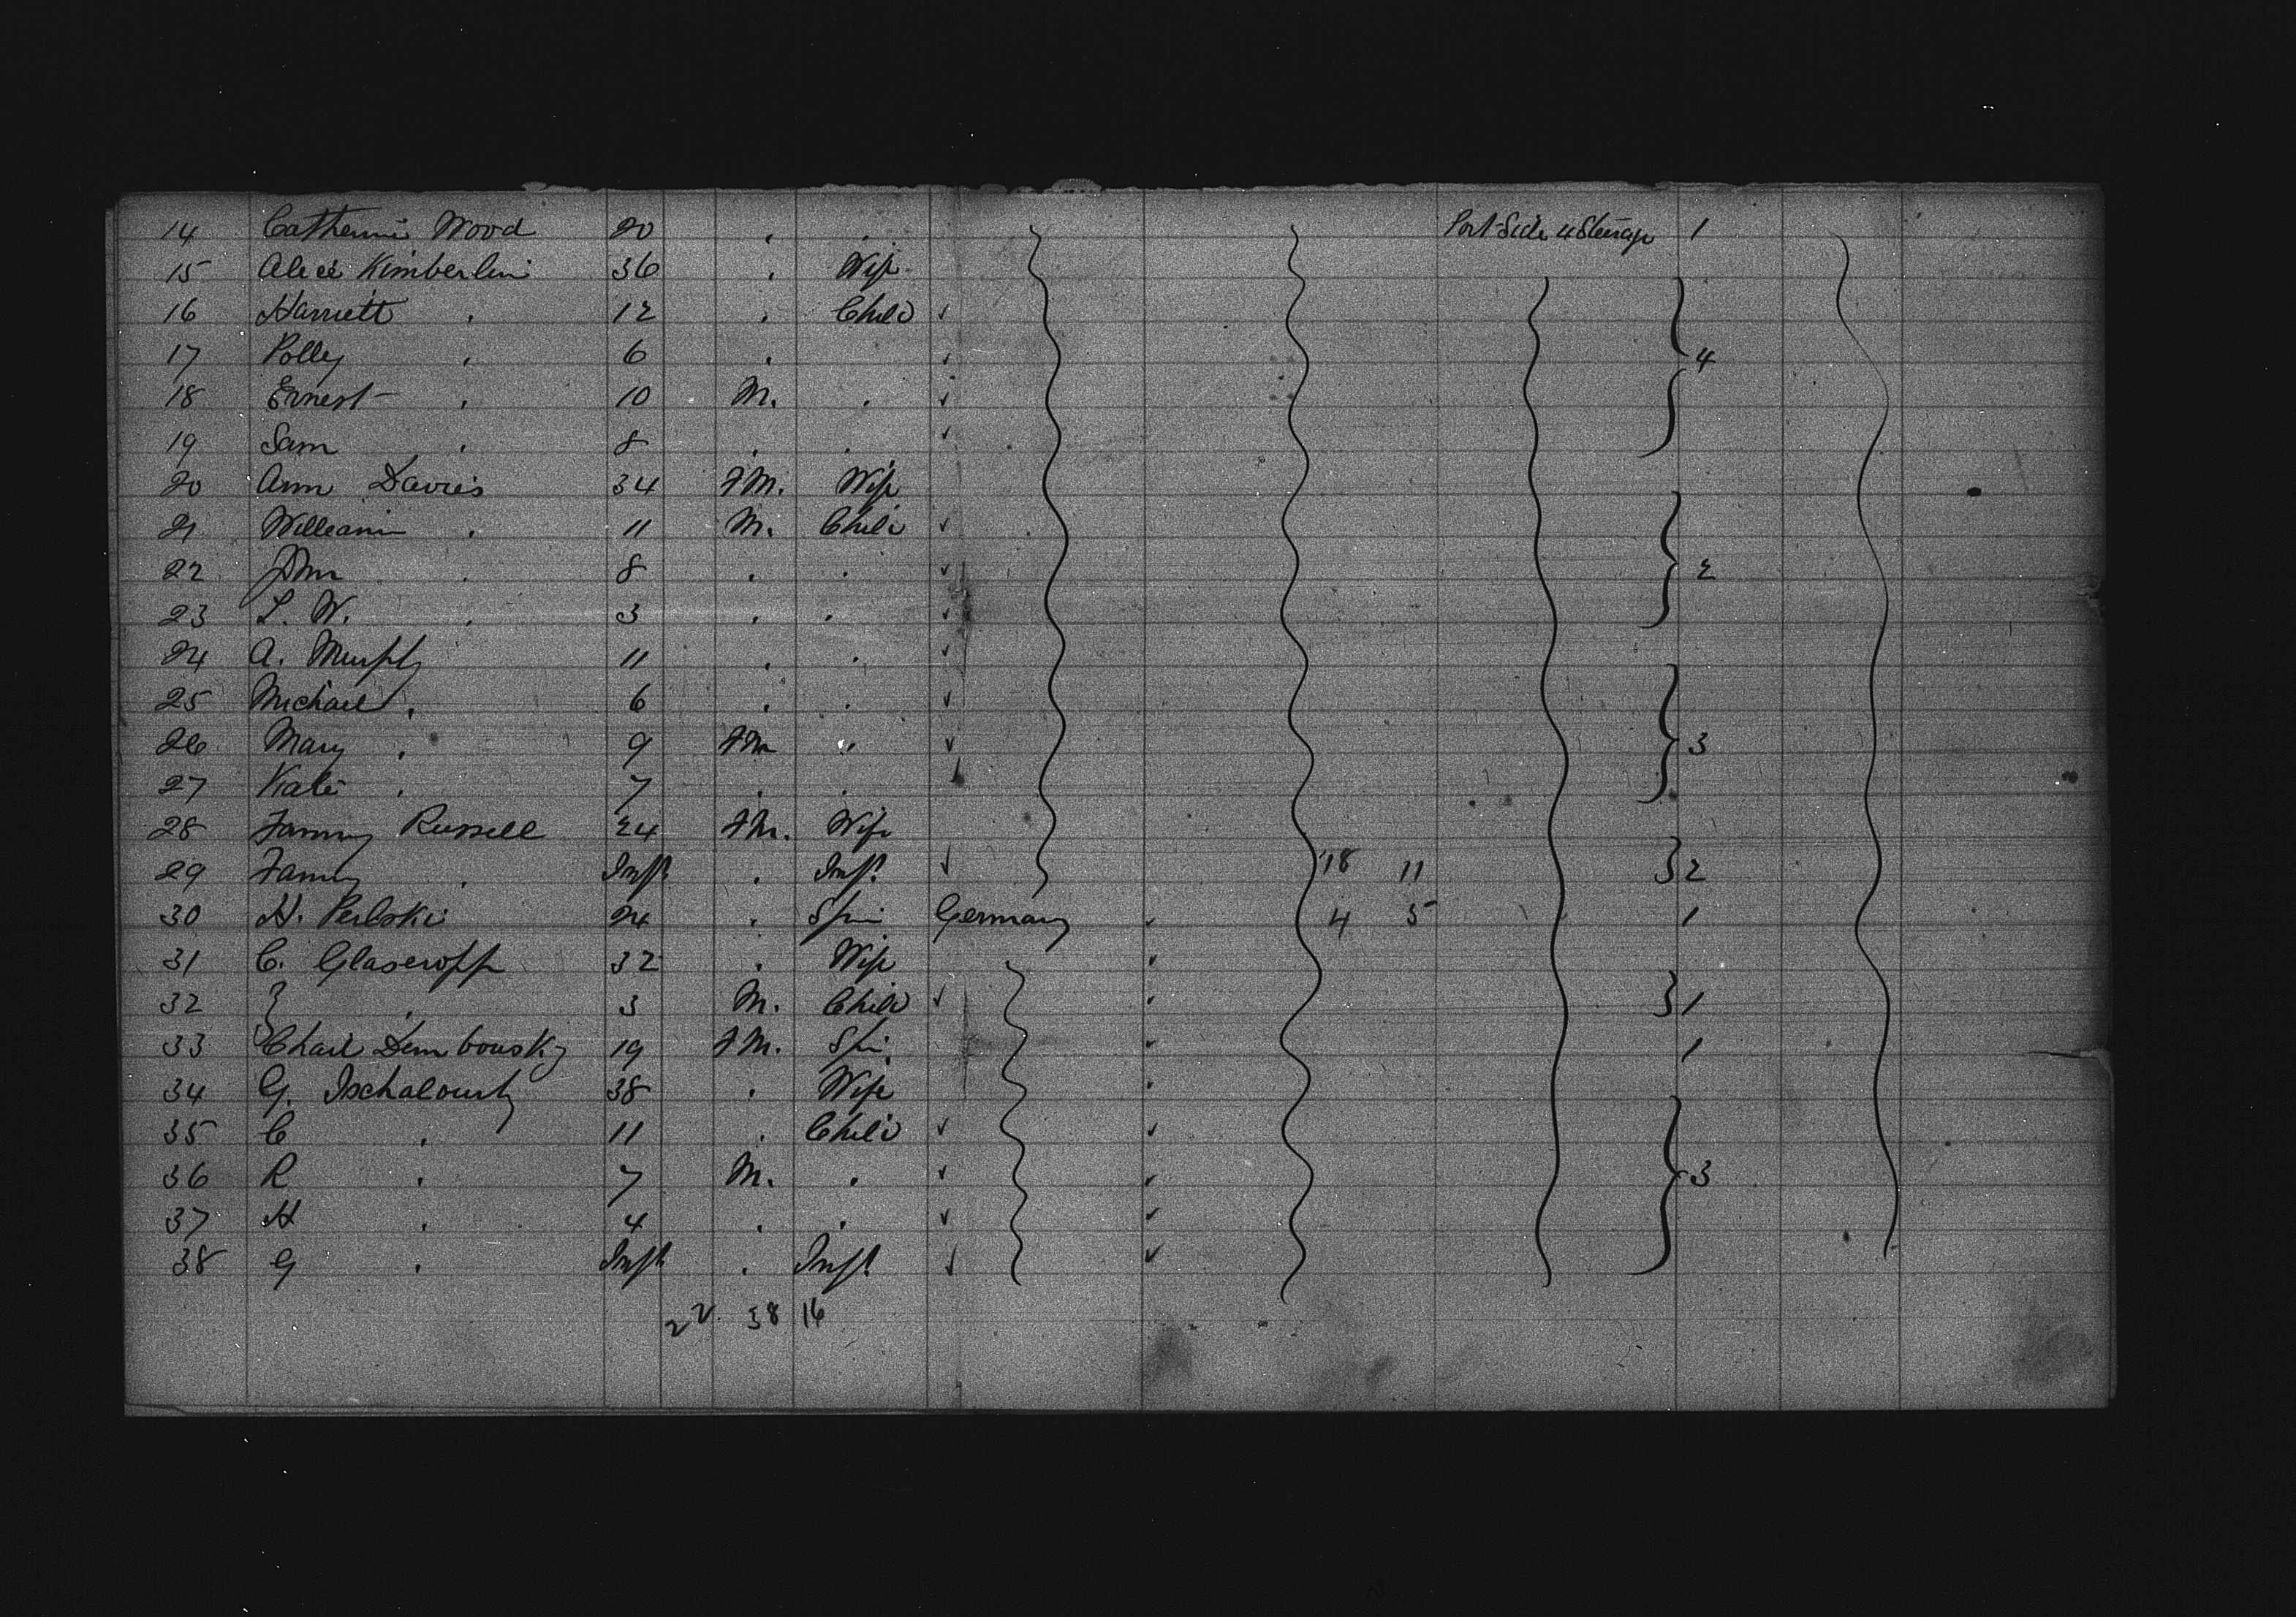 14 Catherine Wood 20 . . Port Side u Steerage 1
15 Alice Kimberlin 36 . Wife
16 Harriett . 12 . Child
17 Polly . 6 . 4
18 Ernest . 10 M. .
19 Sam . 8 . .
20 Ann Davies 34 FM. Wife
21 William . 11 M. Child
22 John . 8 . . 2
23 L. W. . 3 . .
24 A. Murphy 11 . .
25 Michael . 6 . .
26 Mary . 9 FM . 3
27 Kate . 7 . .
28 Fanny Russell 24 FM. Wife
29 Fanny . Inft. . Inft. 18 11 2
30 H. Perlski 24 . Spin Germany 4 5 1
31 C. Glaseroff 32 . Wife
32 . 3 M. Child 1
33 Dembousky 19 FM. Spi. 1
34 G. 38 . Wife
35 C . 11 . Child
36 R . 7 M. . 3
37 H . 4 . .
38 G . Inft. . Inft.
22 38 16